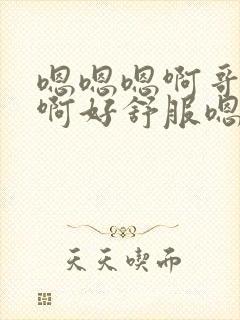 嗯嗯嗯啊哥
啊好舒服嗯
天天喫而